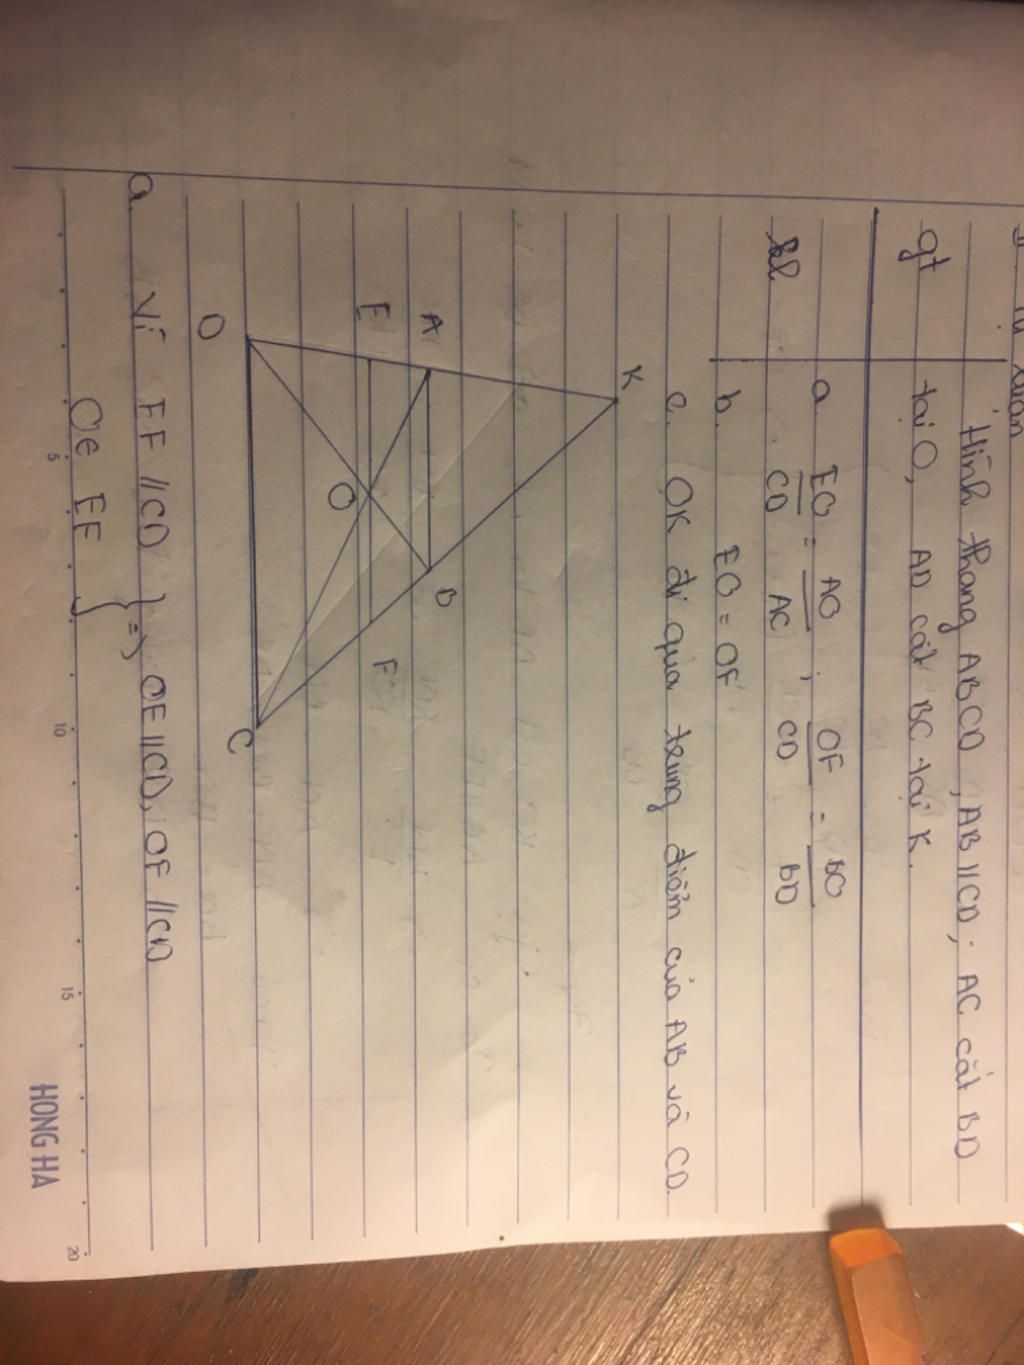 gt Hình thang ABCD, AB//CD; AC cắt BD
tại O, AD cắt BC tại K.
kl a. EO/CD = AO/AC ; OF/CD = BO/BD
b. EO = OF
c. OK đi qua trung điểm của AB và CD.
K
A B
E O F
D C
a. Vì EF //CD } => OE//CD, OF //CD
O∈ EF }
5 10 15 20
HONG HA